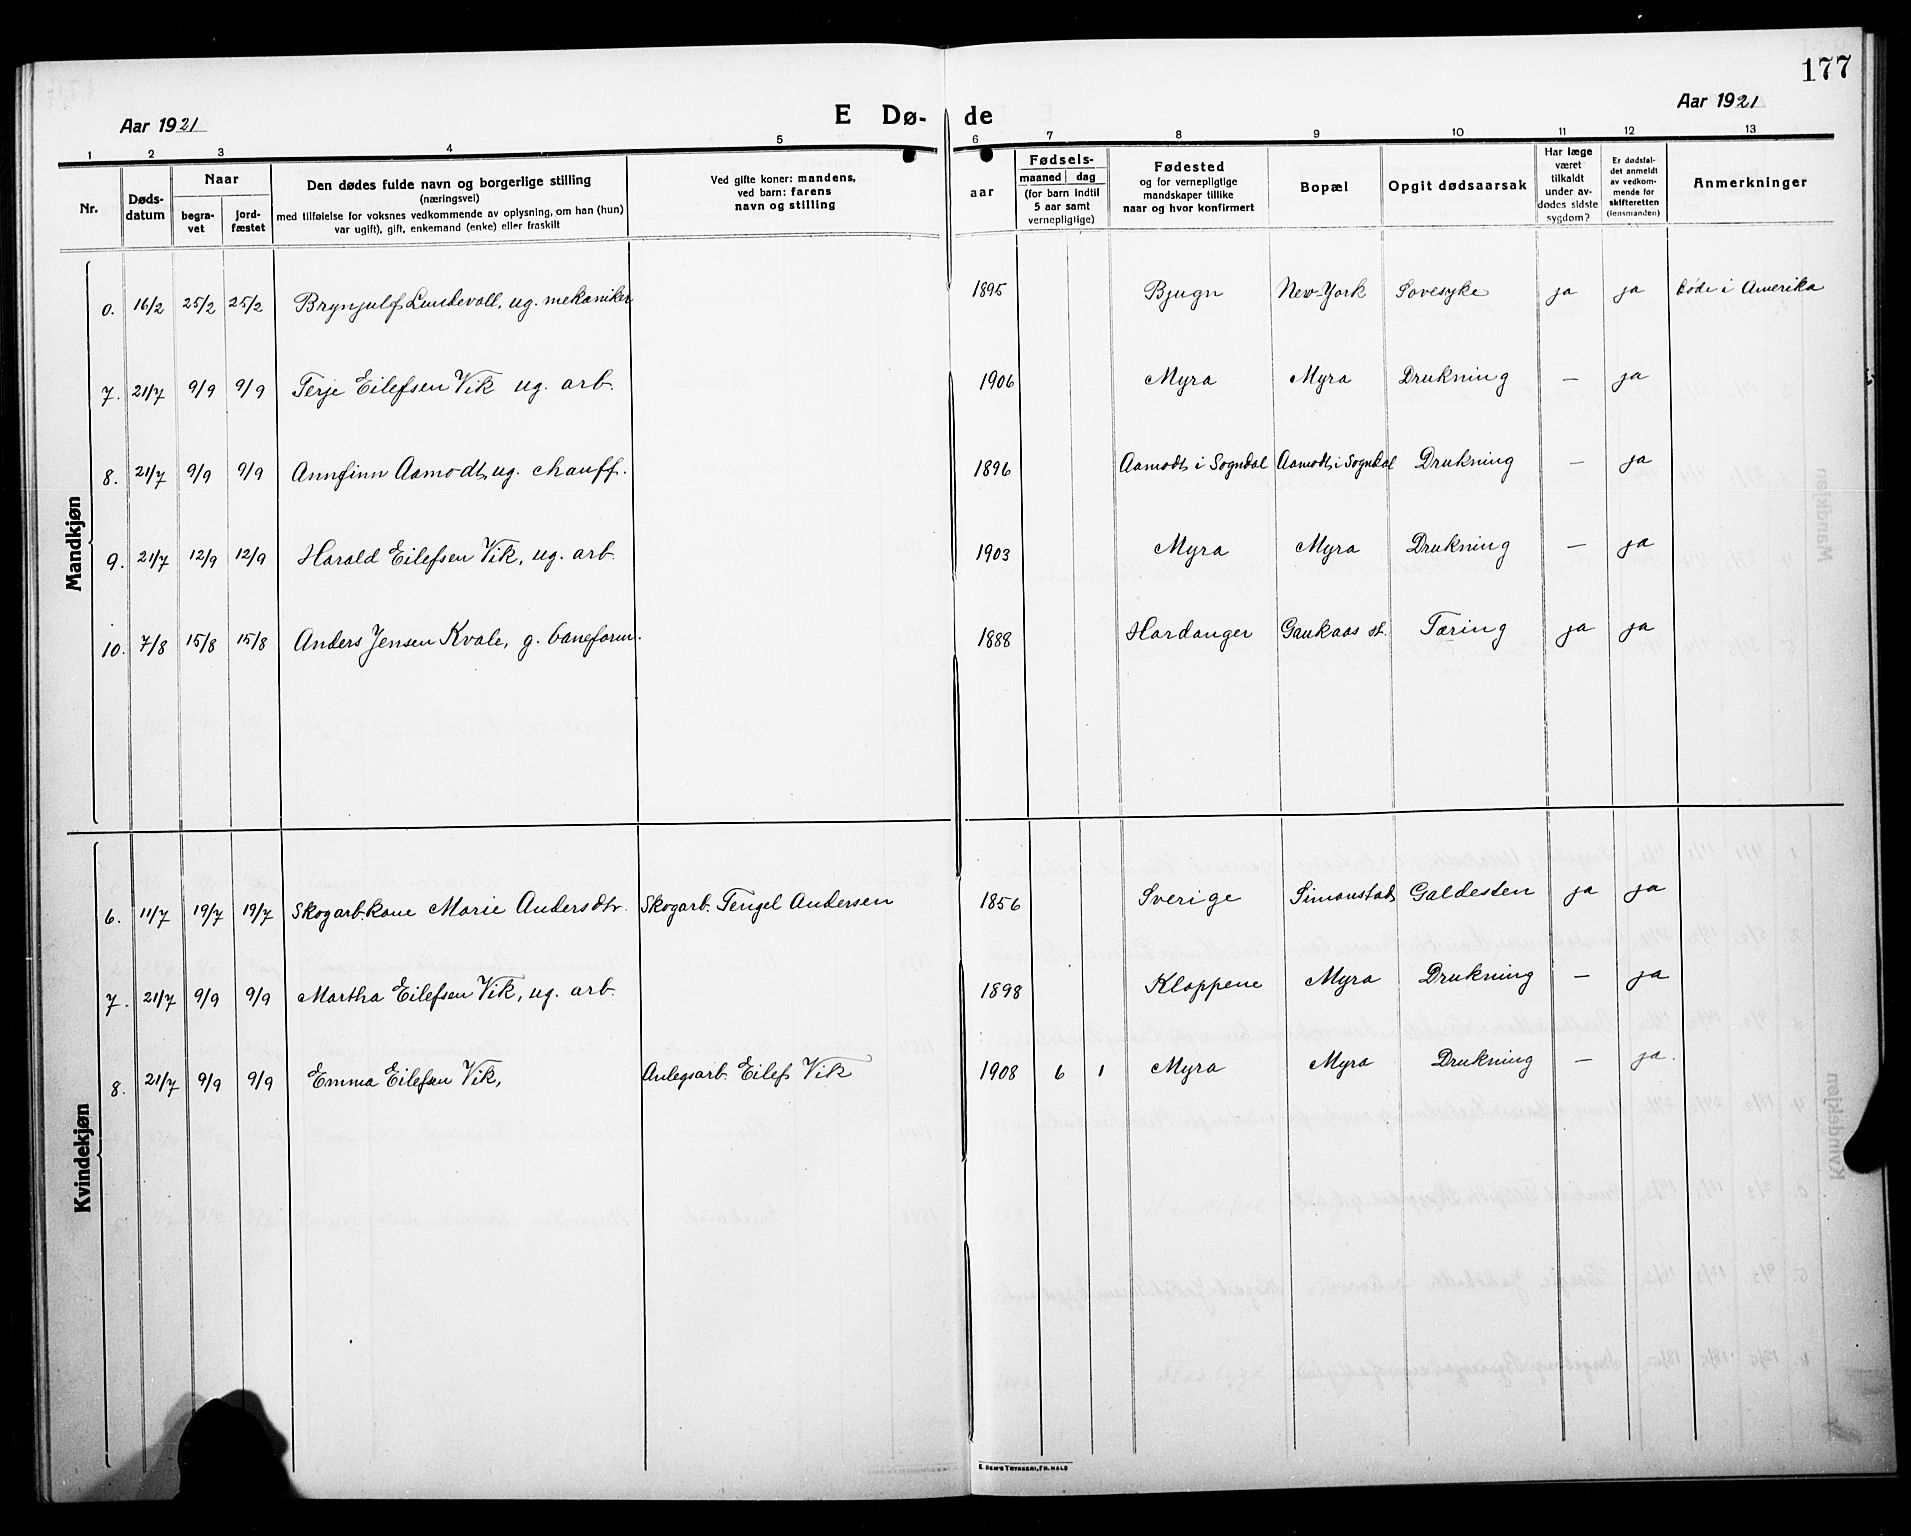 177
Aar 1921
E Dø-de
Aar 1921
1 2 3 4 5 6 7 8 9 10 11 12 13
Nr.
Døds-
datum
Naar
begra-
vet
jord-
fæstet
Den dødes fulde navn og borgerlige stilling
(næringsvei)
med tilføielse for voksnes vedkommende av oplysning, om han (hun)
var ugift), gift, enkemand (enke) eller fraskilt
Ved gifte koner: mandens,
ved barn: farens
navn og stilling
aar
Fødsels-
maaned dag
(for barn indtil
5 aar samt
vernepligtige)
Fødested
og for vernepligtige
mandskaper tillike
naar og hvor konfirmert
Bopæl
Opgit dødsaarsak
Har læge
været
tilkaldt
under av-
dødes sidste
sygdom?
Er dødsfal-
det anmeldt
av vedkom-
mende for
skifteretten
(lensmanden)
Anmerkninger
Mandkjøn
0. 16/2 25/2 25/2 Brynjulf Lundevoll, ug. mekaniker 1895 Bjugn New-York Sovesyke ja ja Døde i Amerika
7. 21/7 9/9 9/9 Terje Eilefsen Vik ug. arb. 1906 Myra Myra Drukning — ja
8. 21/7 9/9 9/9 Annfinn Aamodt, ug. chauff. 1896 Aamodt i Sogndal Aamodt i Sogndal Drukning — ja
9. 21/7 12/9 12/9 Harald Eilefsen Vik, ug. arb. 1903 Myra Myra Drukning — ja
10. 7/8 15/8 15/8 Anders Jensen Kvale, g. baneform. 1888 Hardanger Gaukaas st. Tæring ja ja
Kvindekjøn
6. 11/7 19/7 19/7 Skogarb.kone Marie Andersdtr. Skogarb. Tengel Andersen 1856 Sverige Simonstad Galdesten ja ja
7. 21/7 9/9 9/9 Martha Eilefsen Vik, ug. arb. 1898 Kloppene Myra Drukning — ja
8. 21/7 9/9 9/9 Emma Eilefsen Vik, Anlegsarb. Eilef Vik 1908 6 1 Myra Myra Drukning — ja.
E. SEM'S TRYKKERI, FR.HALD